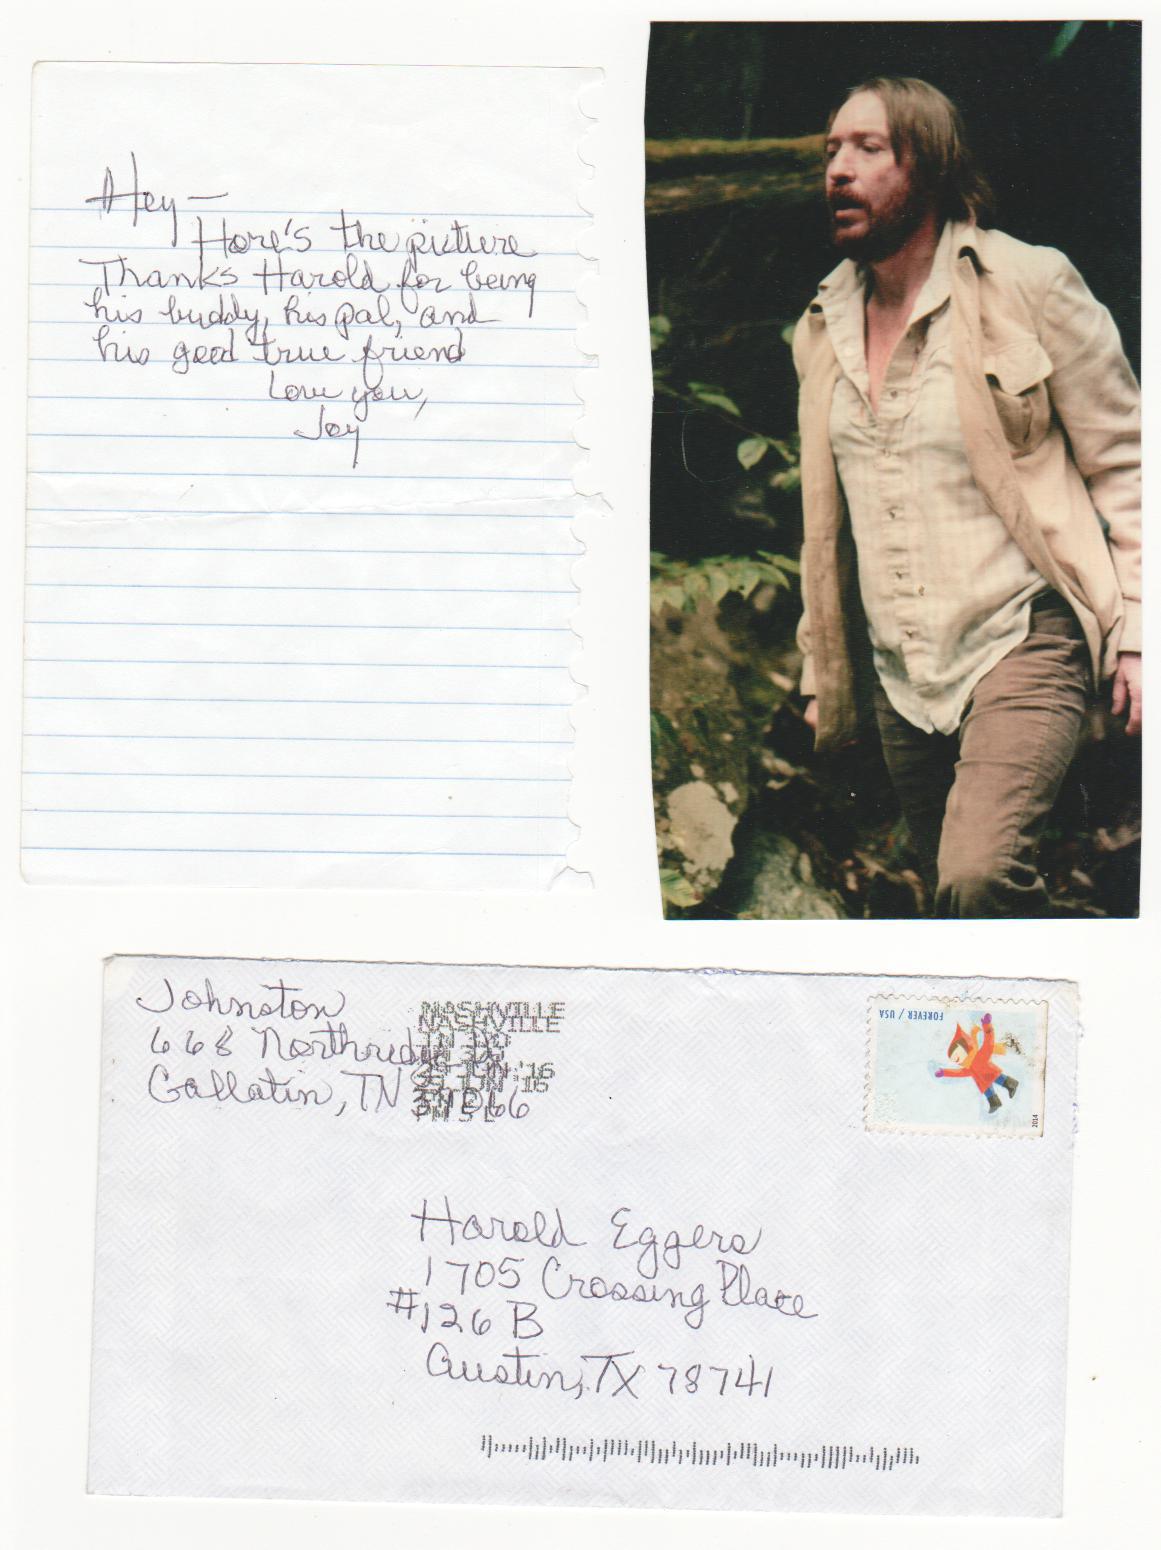 Hey—
Here's the picture
Thanks Harold for being
his buddy, his pal, and
his good true friend
Love you,
Joy
Johnston
668 Northridge
Gallatin, TN 37066
NASHVILLE
NASHVILLE
JUN '16
JUN '16
FOREVER / USA
2014
Harold Eggers
1705 Crossing Place
#126 B
Austin, TX 78741